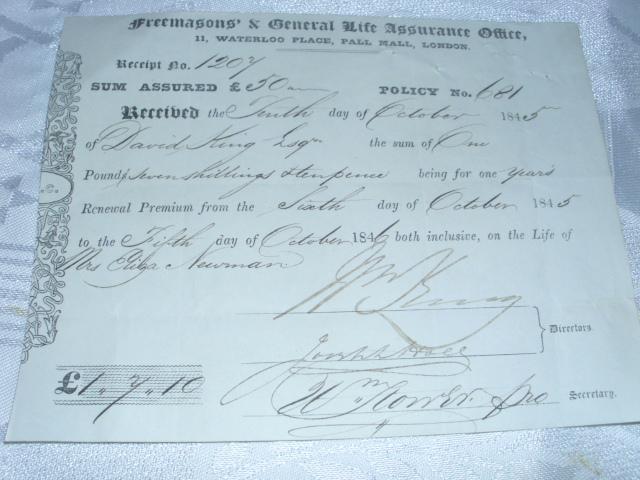 Freemasons' & General Life Assurance Office,
11, WATERLOO PLACE, PALL MALL, LONDON.
Receipt No. 1207
SUM ASSURED £ 50 POLICY No. 681
Received the Tenth day of October 1845
of David King Esqr the sum of One
Pound seven shillings & tenpence being for one year's
Renewal Premium from the Sixth day of October 1845
to the Fifth day of October 1846 both inclusive, on the Life of
Mrs Eliza Newman
Directors.
£1,, 7,, 10
Wm Secretary.